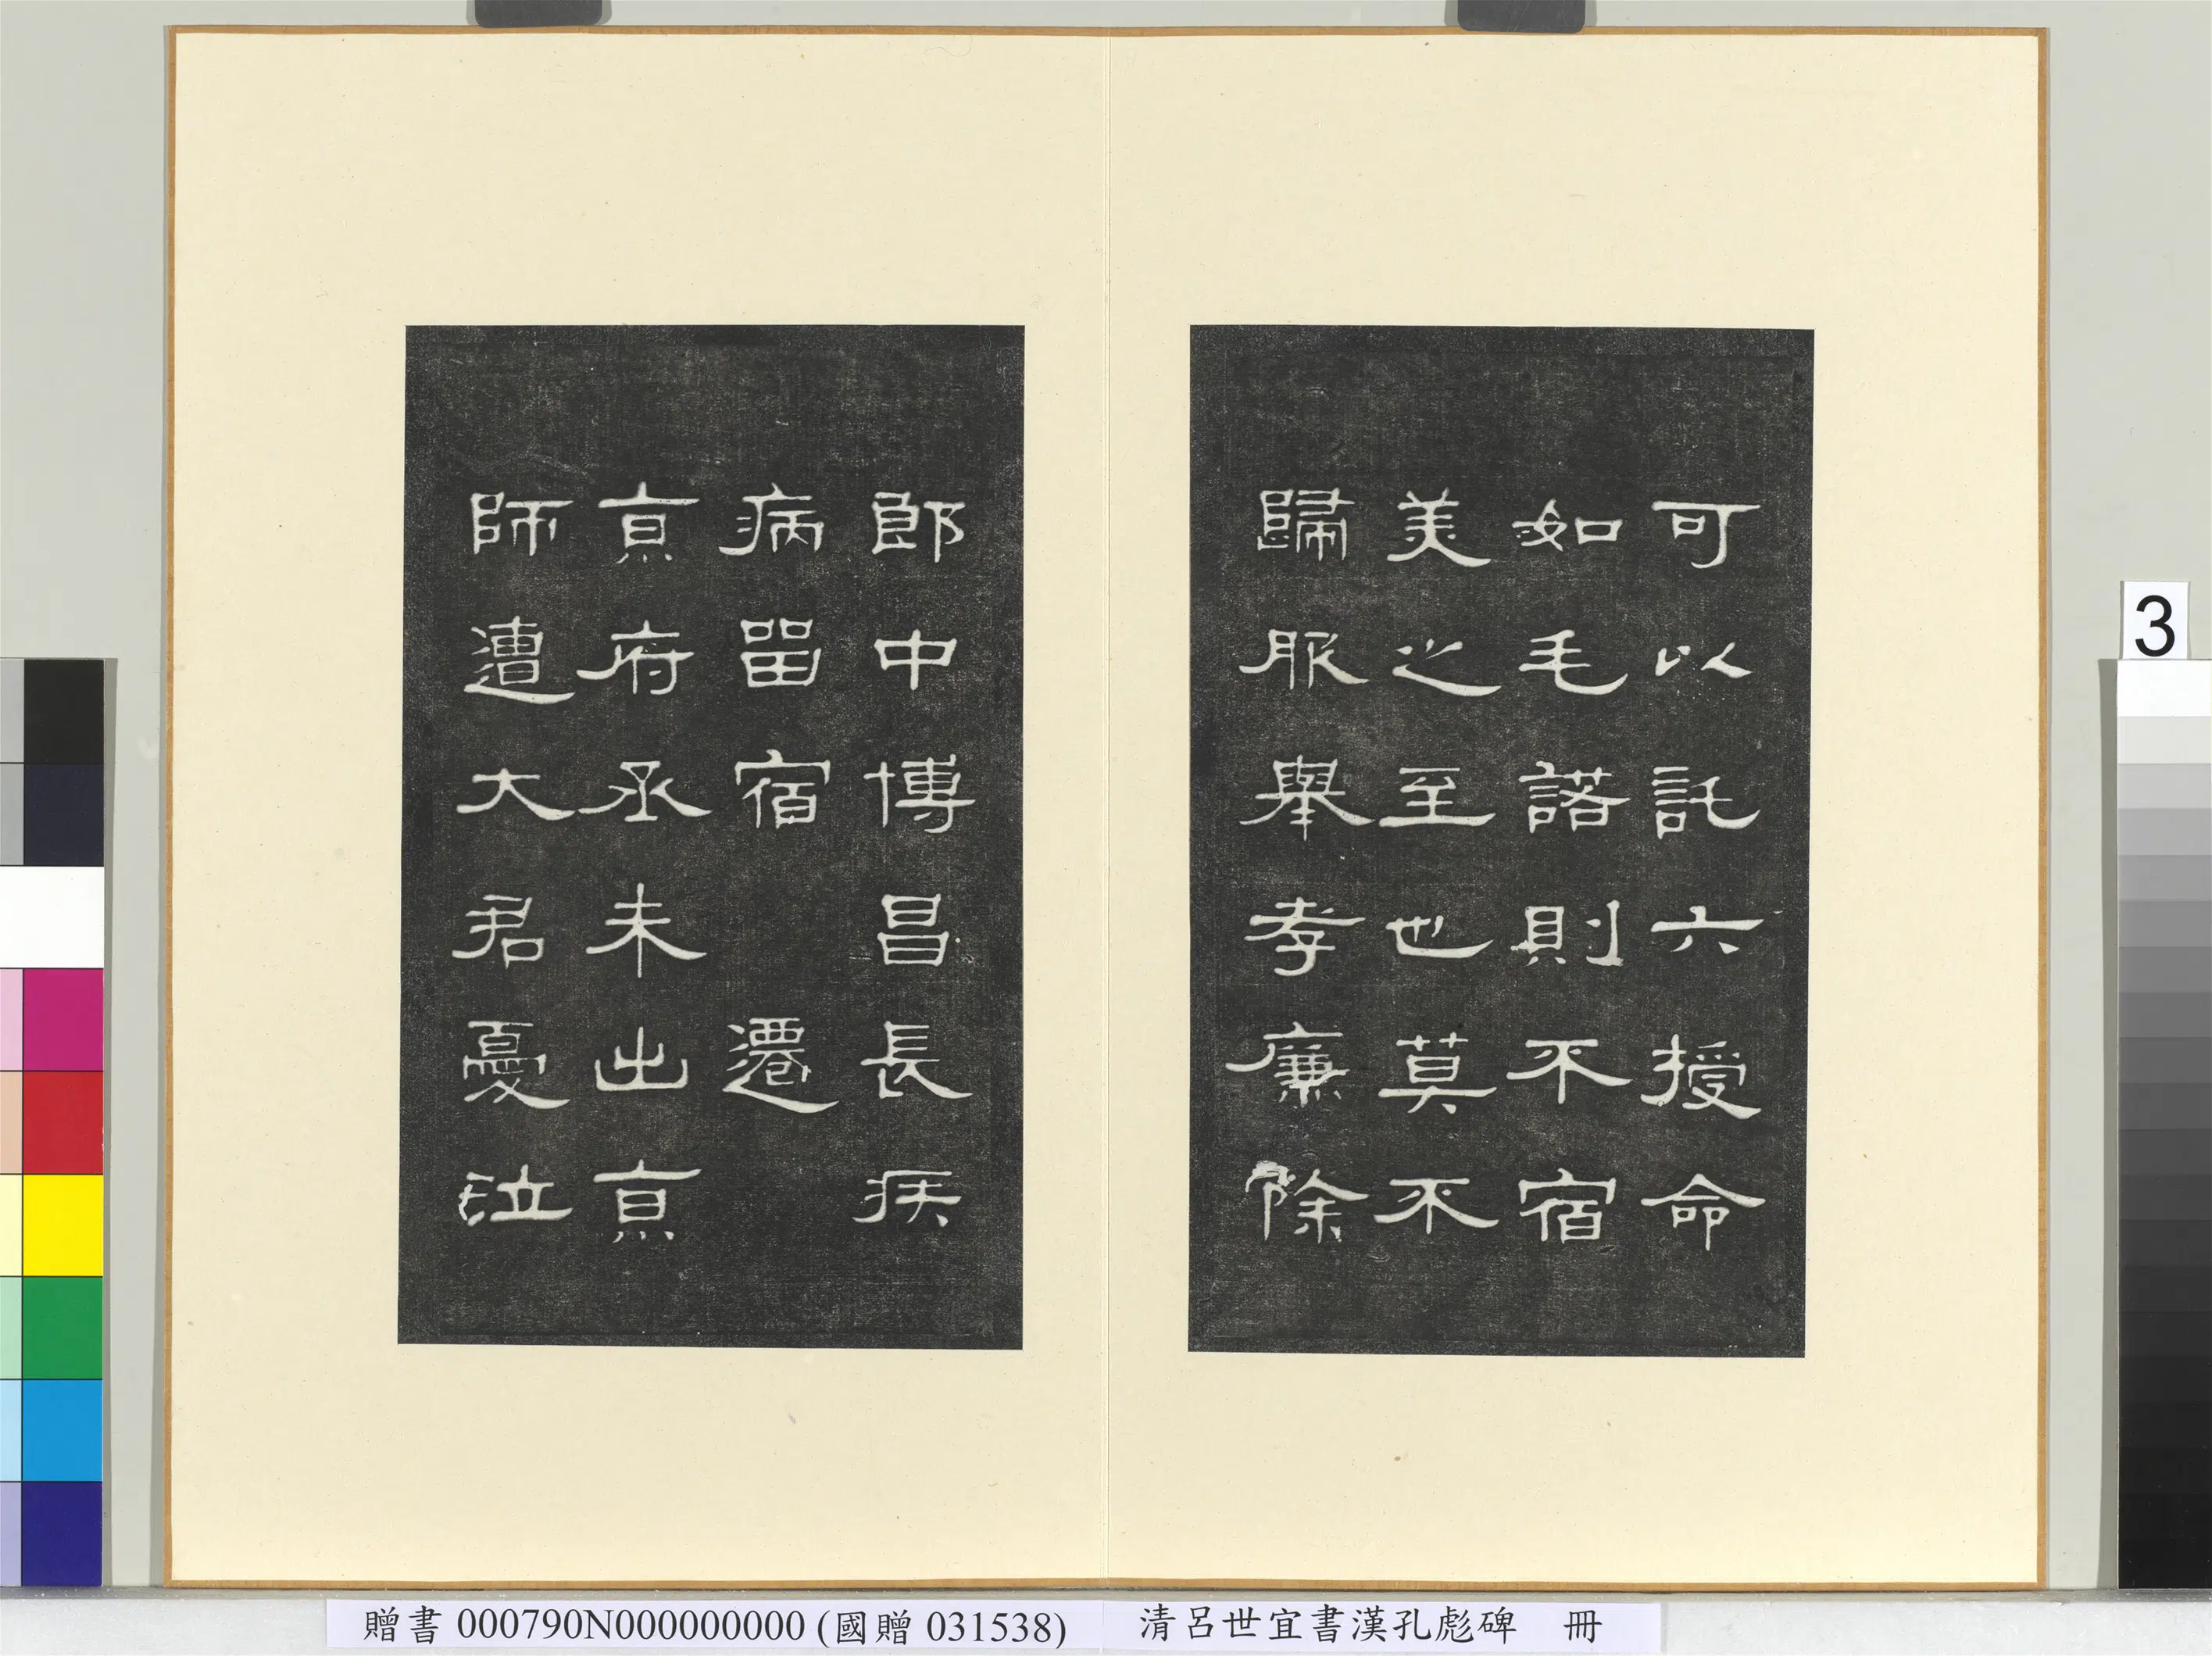 可以託六授命
如毛諾則不宿
美之至也莫不
歸服舉孝廉除
郎中博昌長疾
病留宿遷
京府丞未出京
師遭大君憂泣
3
贈書 000790N000000000 (國贈 031538) 清呂世宜書漢孔彪碑 冊